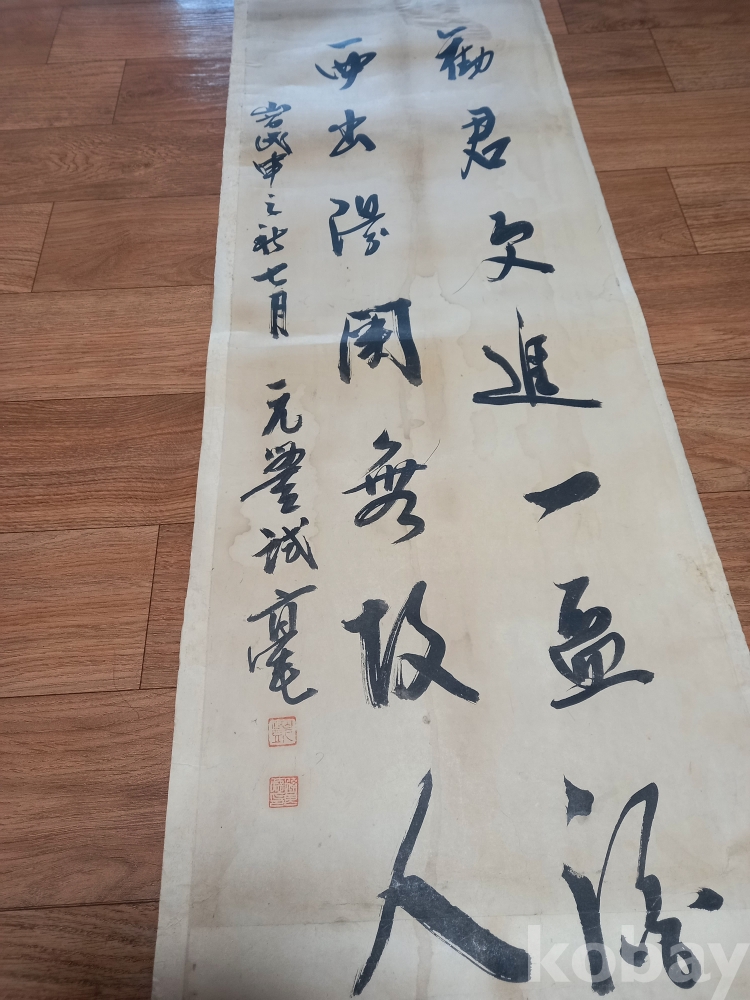 勸君更進一盃酒
西出陽關無故人
岩戊申之秋七月 元豊試毫
kobay